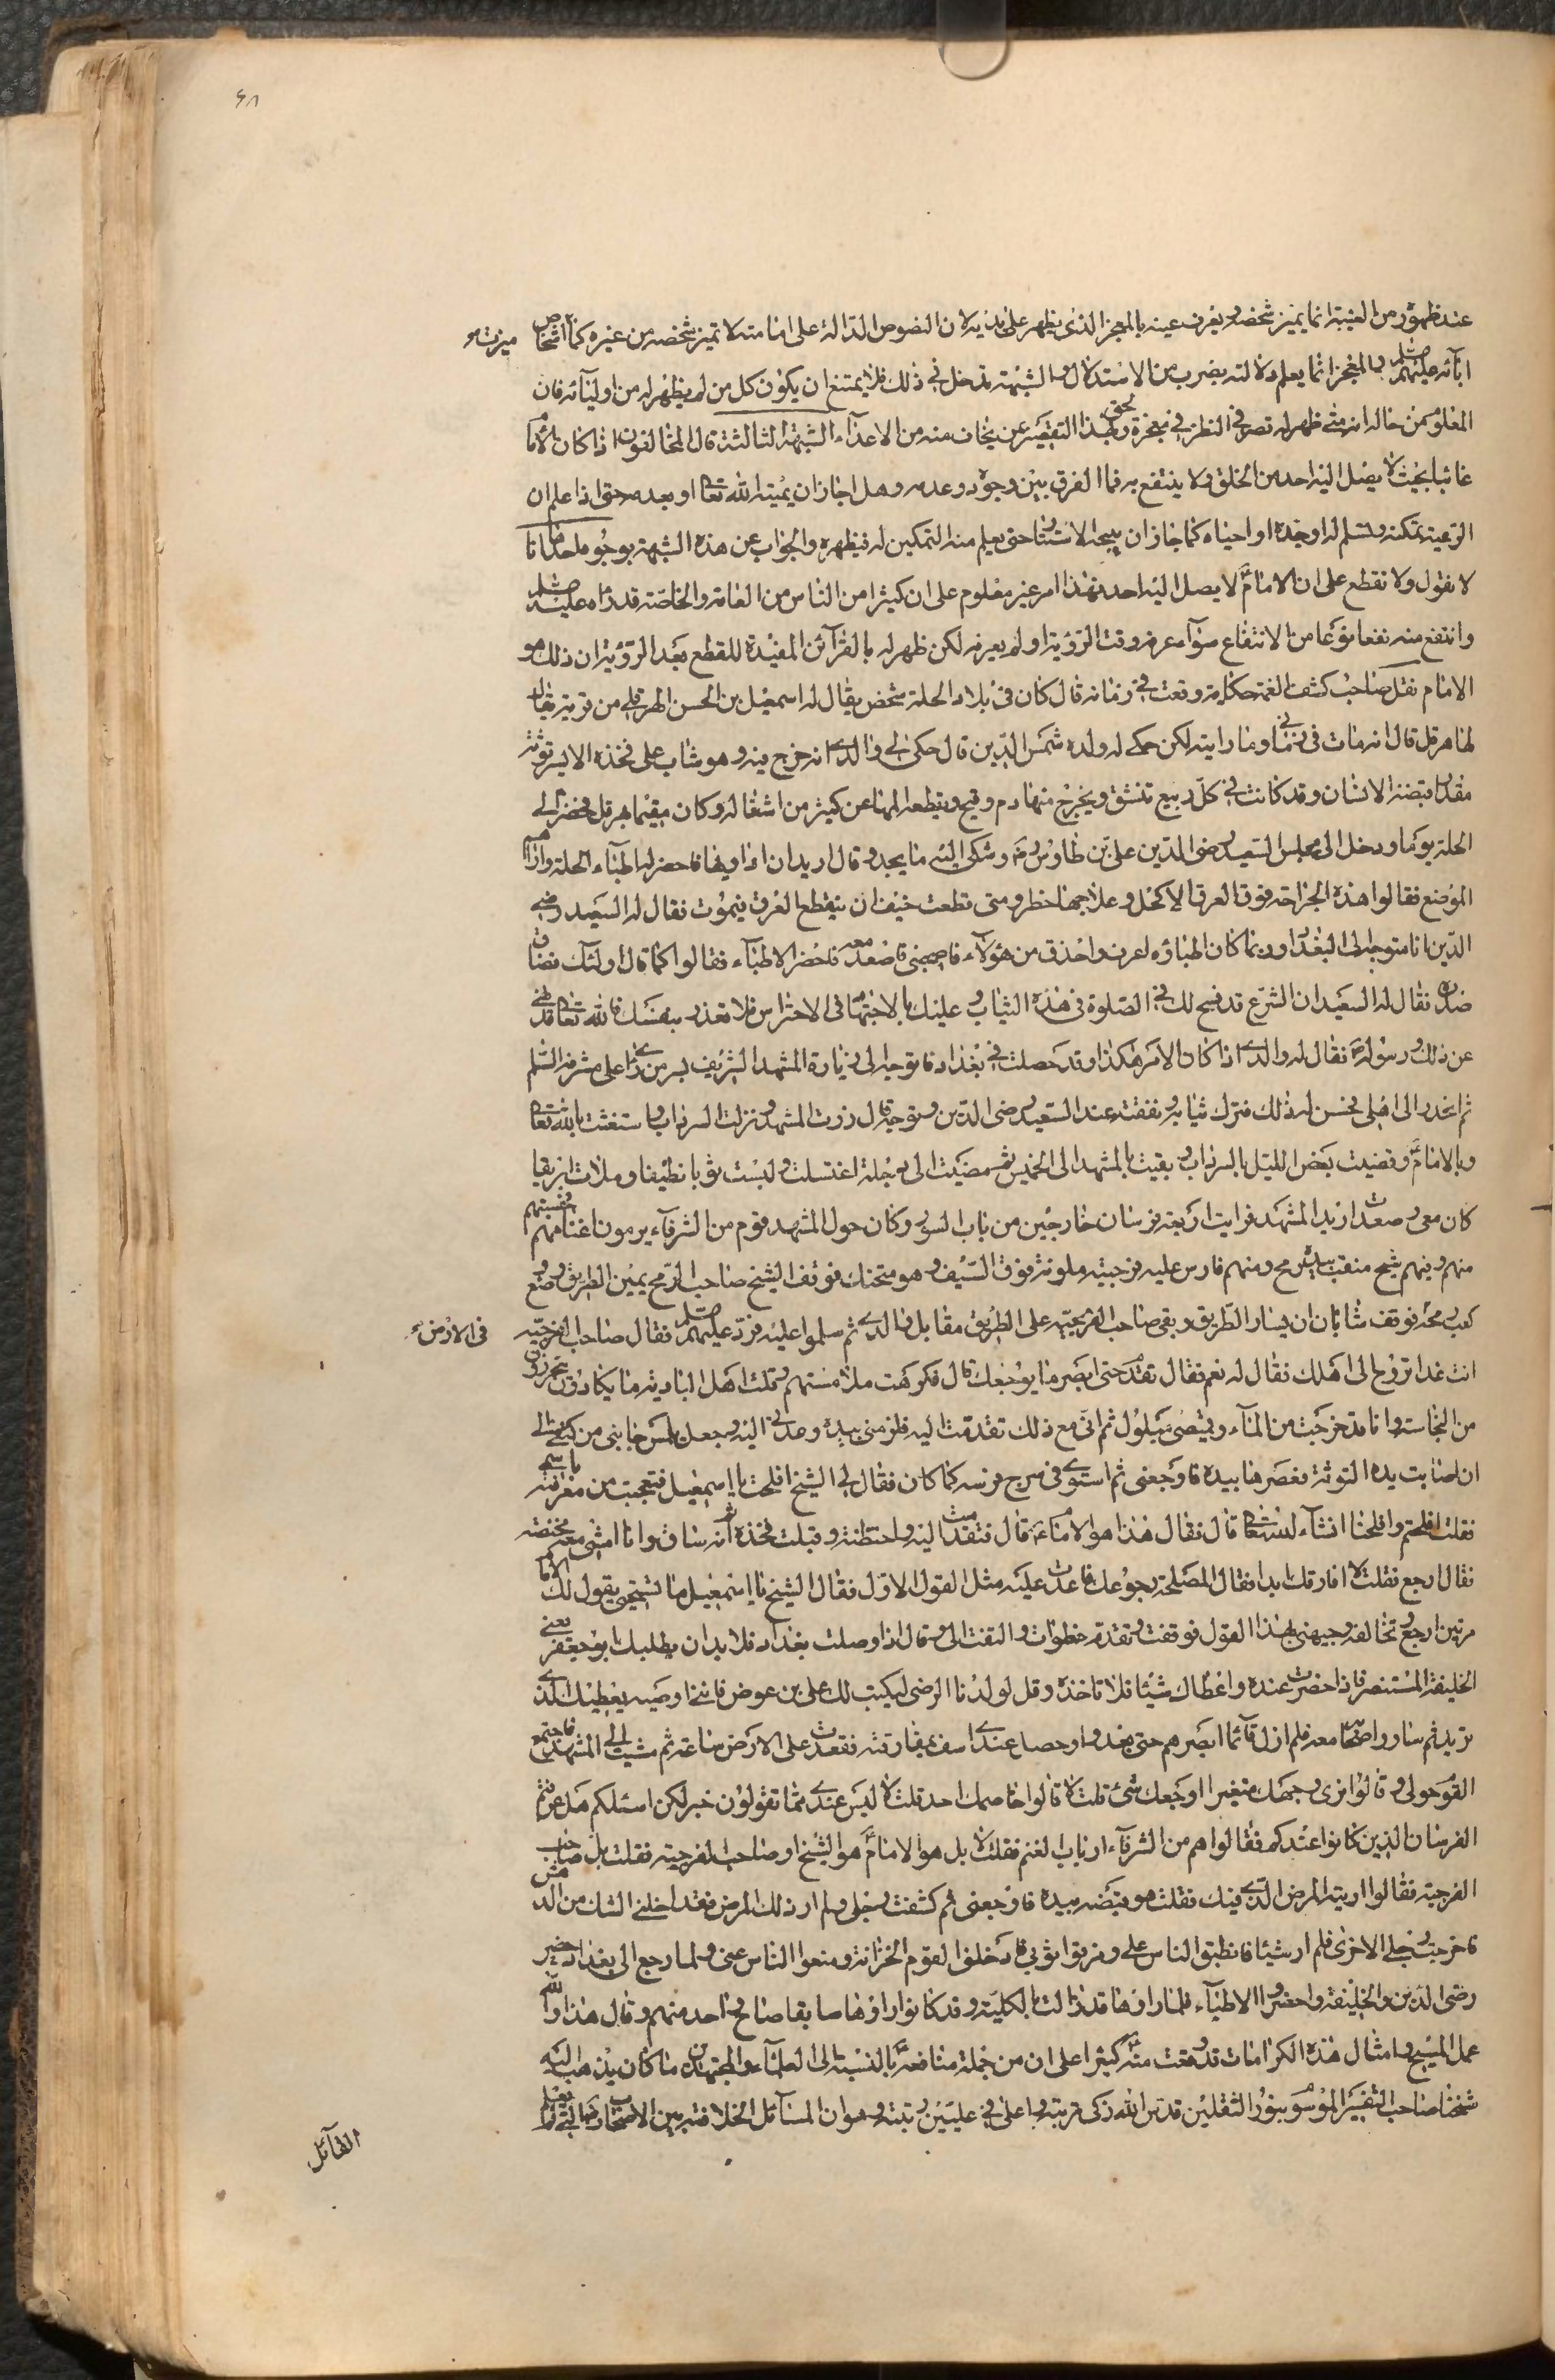 ۶۸
عند ظهوره من الغيبة انما يميز شخصه ويعرف عينه بالمعجز الذى يظهر على يديه لان النصوص الدالة على امامته لا تميز شخصه من غيره كما اشخاص
ميزت
ابائه عليهم السلم والمعجز انما يعلم دلالته بضرب من الاستدلال والشبهة تدخل فى ذلك فلا يمتنع ان يكون كل من لم يظهر له من اوليائه فان
المعلوم من حاله انه متى ظهر له قصر فى النظر فى معجزة ولحق بهذا التقصير عن يخاف منه من الاعداء الشبهة الثالثة قال المخالفون اذا كان الامام
غائبا بحيث لا يصل اليه احد من الخلق ولا ينتفع به فما الفرق بين وجوده وعدمه وهل اجاز ان يميته الله تعالى او يعدمه حتى اذا علم ان
الرعية تمكنه وتسلم له اوجده او احياه كما جاز ان يبيحه الاستتار حتى يعلم منه التمكين له فيظهره والجواب عن هذه الشبهة بوجوه احدها انا
لا نقول ولا نقطع على ان الامام ع لا يصل اليه احد فهذا امر غير معلوم على ان كثيرا من الناس من العامة والخاصة قد راه عليه السلم
وانتفع منه نفعا نوعا من الانتفاع سواء عرفه وقت الرؤية او لم يعرفه لكن ظهر له بالقرائن المفيدة للقطع بعد الرؤية ان ذلك هو
الامام نقل صاحب كشف الغمة حكاية وقعت فى زمانه قال كان فى بلاد الحلة شخص يقال له اسمعيل بن الحسن الهرقلى من قرية يقال
لها هرقل قال انه مات فى زمانى وما رايته لكن حكى له ولده شمس الدين قال حكى لى والدى انه خرج فيه وهو شاب على فخذه الايسر توثة
مقدار قبضة الانسان وقد كانت فى كل ربيع تتشقق ويخرج منها دم وقيح ويقطعه المها عن كثير من اشغاله وكان مقيما بهرقل فحضر الى
الحلة يوما ودخل الى مجلس السعيد رضى الدين على بن طاوس ره وشكى اليه ما يجد وقال اريد ان اداويها فاحضر له اطباء الحلة واراهم
الموضع فقالوا هذه الجراحة فوق العرق الاكحل وعلاجها خطر ومتى قطعت خيف ان ينقطع العرق فيموت فقال له السعيد رضى
الدين انا متوجه الى البغداد وربما كان اطباؤه اعرف واحذق من هؤلاء فاصحبنى فاصعد معه فاحضر الاطباء فقالوا كما قال اولئك فضاق
صدره فقال له السعيد ان الشرع قد فسح لك فى الصلوة فى هذه الثياب وعليك بالاجتهاد فى الاحتراس فلا تغرر بنفسك فالله تعالى قد نهى
عن ذلك ورسوله ص فقال له والدى اذا كان الامر هكذا وقد حصلت فى بغداد فاتوجه الى زيارة المشهد الشريف بسر من راى على مشرفه السلم
ثم انحدر الى اهلى فحسن له ذلك فترك ثيابه ونفقته عند السعيد رضى الدين وتوجه قال زرت المشهد ونزلت السرداب واستغثت بالله تعالى
وبالامام ع وقضيت بعض الليل بالسرداب وبقيت بالمشهد الى الخميس ثم مضيت الى دجلة اغتسلت ولبست ثوبا نظيفا وملات ابريقا
كان معى وصعدت اريد المشهد فرايت اربعة فرسان خارجين من باب السور وكان حول المشهد قوم من الشرفاء يرعون اغنامهم فحسبتهم
منهم وفيهم شيخ منقب بيده رمح ومنهم فارس عليه فرجية ملونة فوق السيف وهو متحنك فوقف الشيخ صاحب الرمح يمين الطريق ووضع
كعب رمحه
فى الارض
فوقف شابان ان يسار الطريق وبقى صاحب الفرجية على الطريق مقابل والدى ثم سلموا عليه فرد عليهم السلم فقال صاحب الفرجية
انت غدا تروح الى اهلك فقال له نعم فقال تقدم حتى ابصر ما يوجعك قال فكرهت ملامستهم وقلت اهل البادية ما يكادون يتحرزون
من النجاسة وانا قد خرجت من الماء وقميصى مبلول ثم انى مع ذلك تقدمت اليه فلزمنى بيده ومدنى اليه وجعل يلمس جانبى من كتفى الى
ان اصابت يده التوثة فعصرها بيده فاوجعنى ثم استوى فى سرج فرسه كما كان فقال لى الشيخ افلحت يا اسمعيل فتعجبت من معرفته باسمى
فقلت افلحتم وافلحنا انشاء الله تعالى قال فقال هذا هو الامام ع قال فتقدمت اليه واحتضنته وقبلت فخذه ثم انه ساق وانا امشى معه محتضنه
فقال ارجع فقلت لا افارقك ابدا فقال المصلحة رجوعك فاعدت عليه مثل القول الاول فقال الشيخ يا اسمعيل ما تستحيى يقول لك الامام
مرتين ارجع وتخالفه وجبهنى بهذا القول فوقفت وتقدم خطوات والتفت الى وقال اذا وصلت بغداد فلا بد ان يطلبك ابو جعفر يعنى
الخليفة المستنصر فاذا حضرت عنده واعطاك شيئا فلا تاخذه وقل لولدنا الرضى ليكتب لك على بن عوض فاننى اوصيه يعطيك الذى
تريد ثم سار واصحابه معه فلم ازل قائما ابصرهم حتى بعدوا وحصل عندى اسف بمفارقته فقعدت على الارض ساعة ثم مشيت الى المشهد فاجتمع
القوم حولى وقالوا نرى وجهك متغيرا اوجعك شئ قلت لا قالوا خاصمك احد قلت لا ليس عندى مما تقولون خبر لكن اسئلكم هل عرفتم
الفرسان الذين كانوا عندكم فقالوا هم من الشرفاء ارباب الغنم فقلت لا بل هو الامام ع هو الشيخ او صاحب الفرجية فقلت بل صاحب
الفرجية فقالوا اريته المرض الذى فيك فقلت هو قبضه بيده فاوجعنى ثم كشفت رجلى ولم ار ذلك المرض فقد داخلنى الشك من الدهش
فاخرجت رجلى الاخرى فلم ار شيئا فانطبق الناس على ومزقوا ثوبى فادخلنى القوم الخزانة ومنعوا الناس عنى ولما رجع الى بغداد اخبر
رضى الدين والخليفة واحضروا الاطباء فلما راوها قد زالت بالكلية وقد كانوا راوها سابقا صاح واحد منهم وقال هذا والله
عمل المسيح وامثال هذه الكرامات قد وقعت منه ع كثيرا على ان من جملة منافعه ع بالنسبة الى العلماء والمجتهدين ما كان يذهب اليه
شيخنا صاحب التفسير الموسوم بنور الثقلين قدس الله زكى تربته واعلى فى عليين رتبته وهو ان المسائل الخلافية بين الاصحاب
القائل